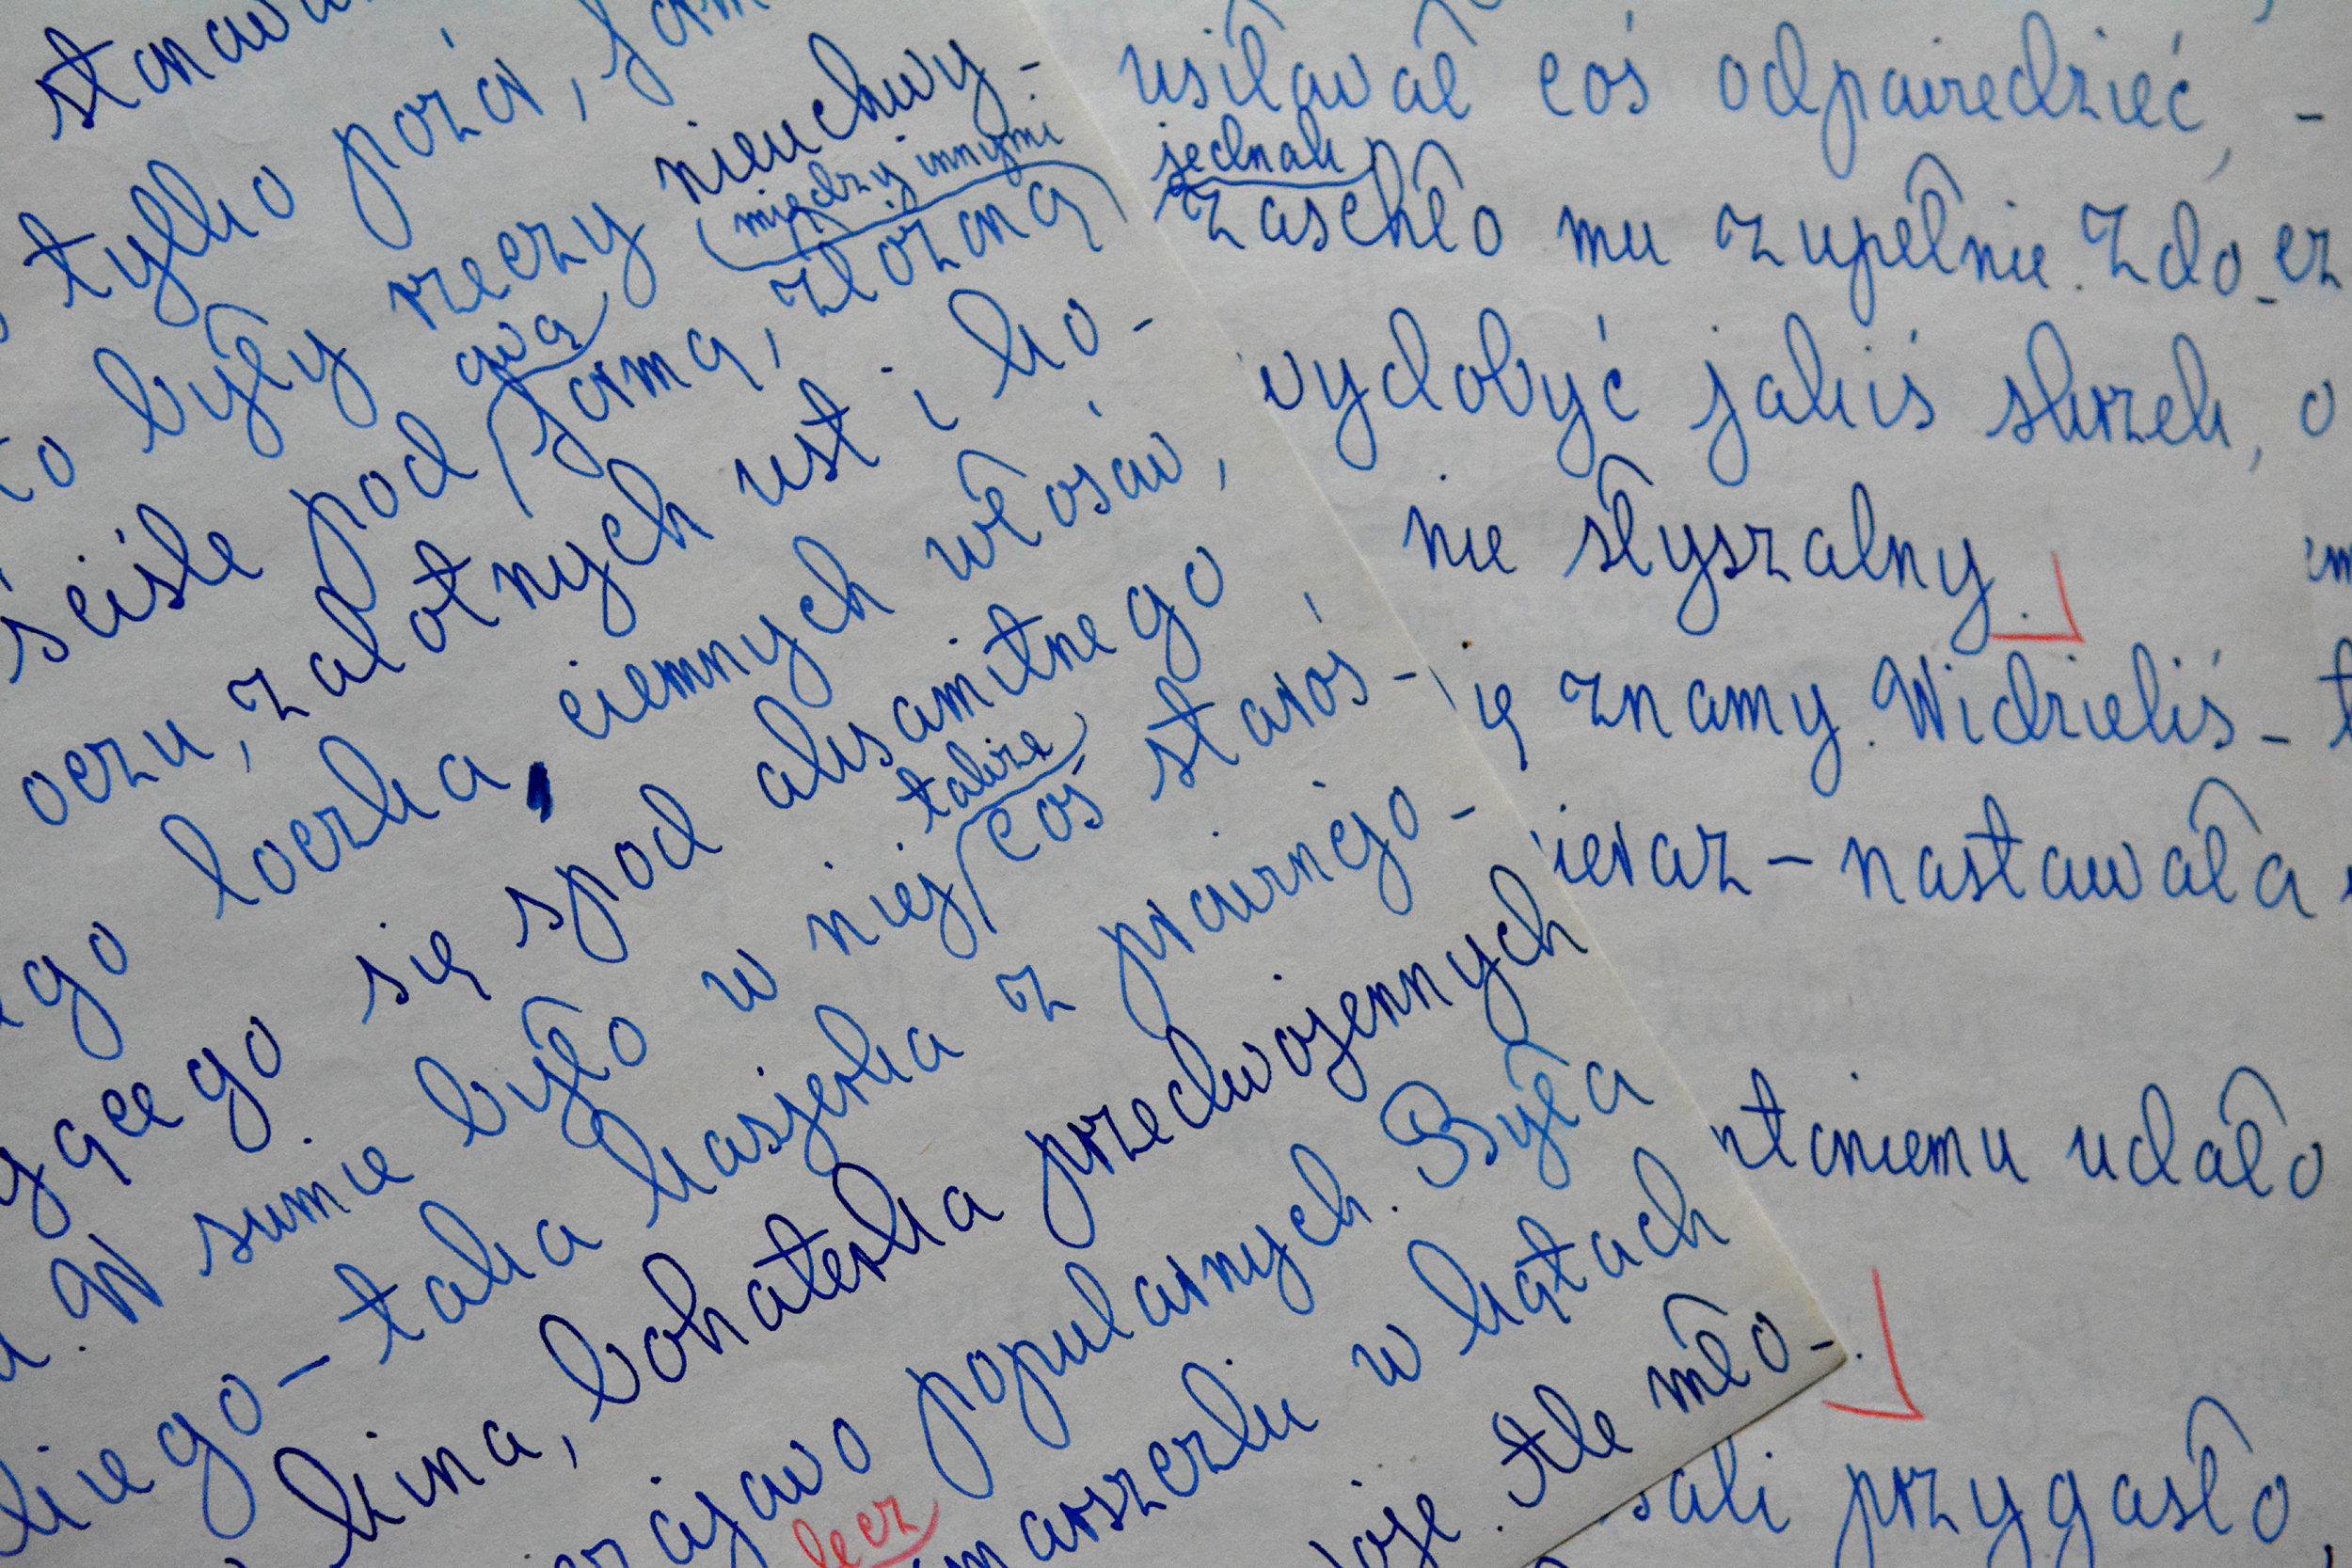 tylko pozór,
były rzeczy nieuchwy-
(między innymi
ową
ściśle pod formą, złożoną
oczu, zalotnych ust i ko-
go loczka, ciemnych włosów,
ącego się spod aksamitnego
także
W sumie było w niej coś staroś-
kiego – taka kasjerka z prowincjo-
kina, bohaterka przedwojennych
popularnych. Była
lecz
zmarszczki w kątach
oje. Ale mło-
usiłował coś odpowiedzieć, -
jednak
zaschło mu zupełnie. Zdo
wydobyć jakiś skrzek, o
nie słyszalny.
ię znamy. Widzieliś-
ieraz – nastawała
tniemu udało
sali przygasło,